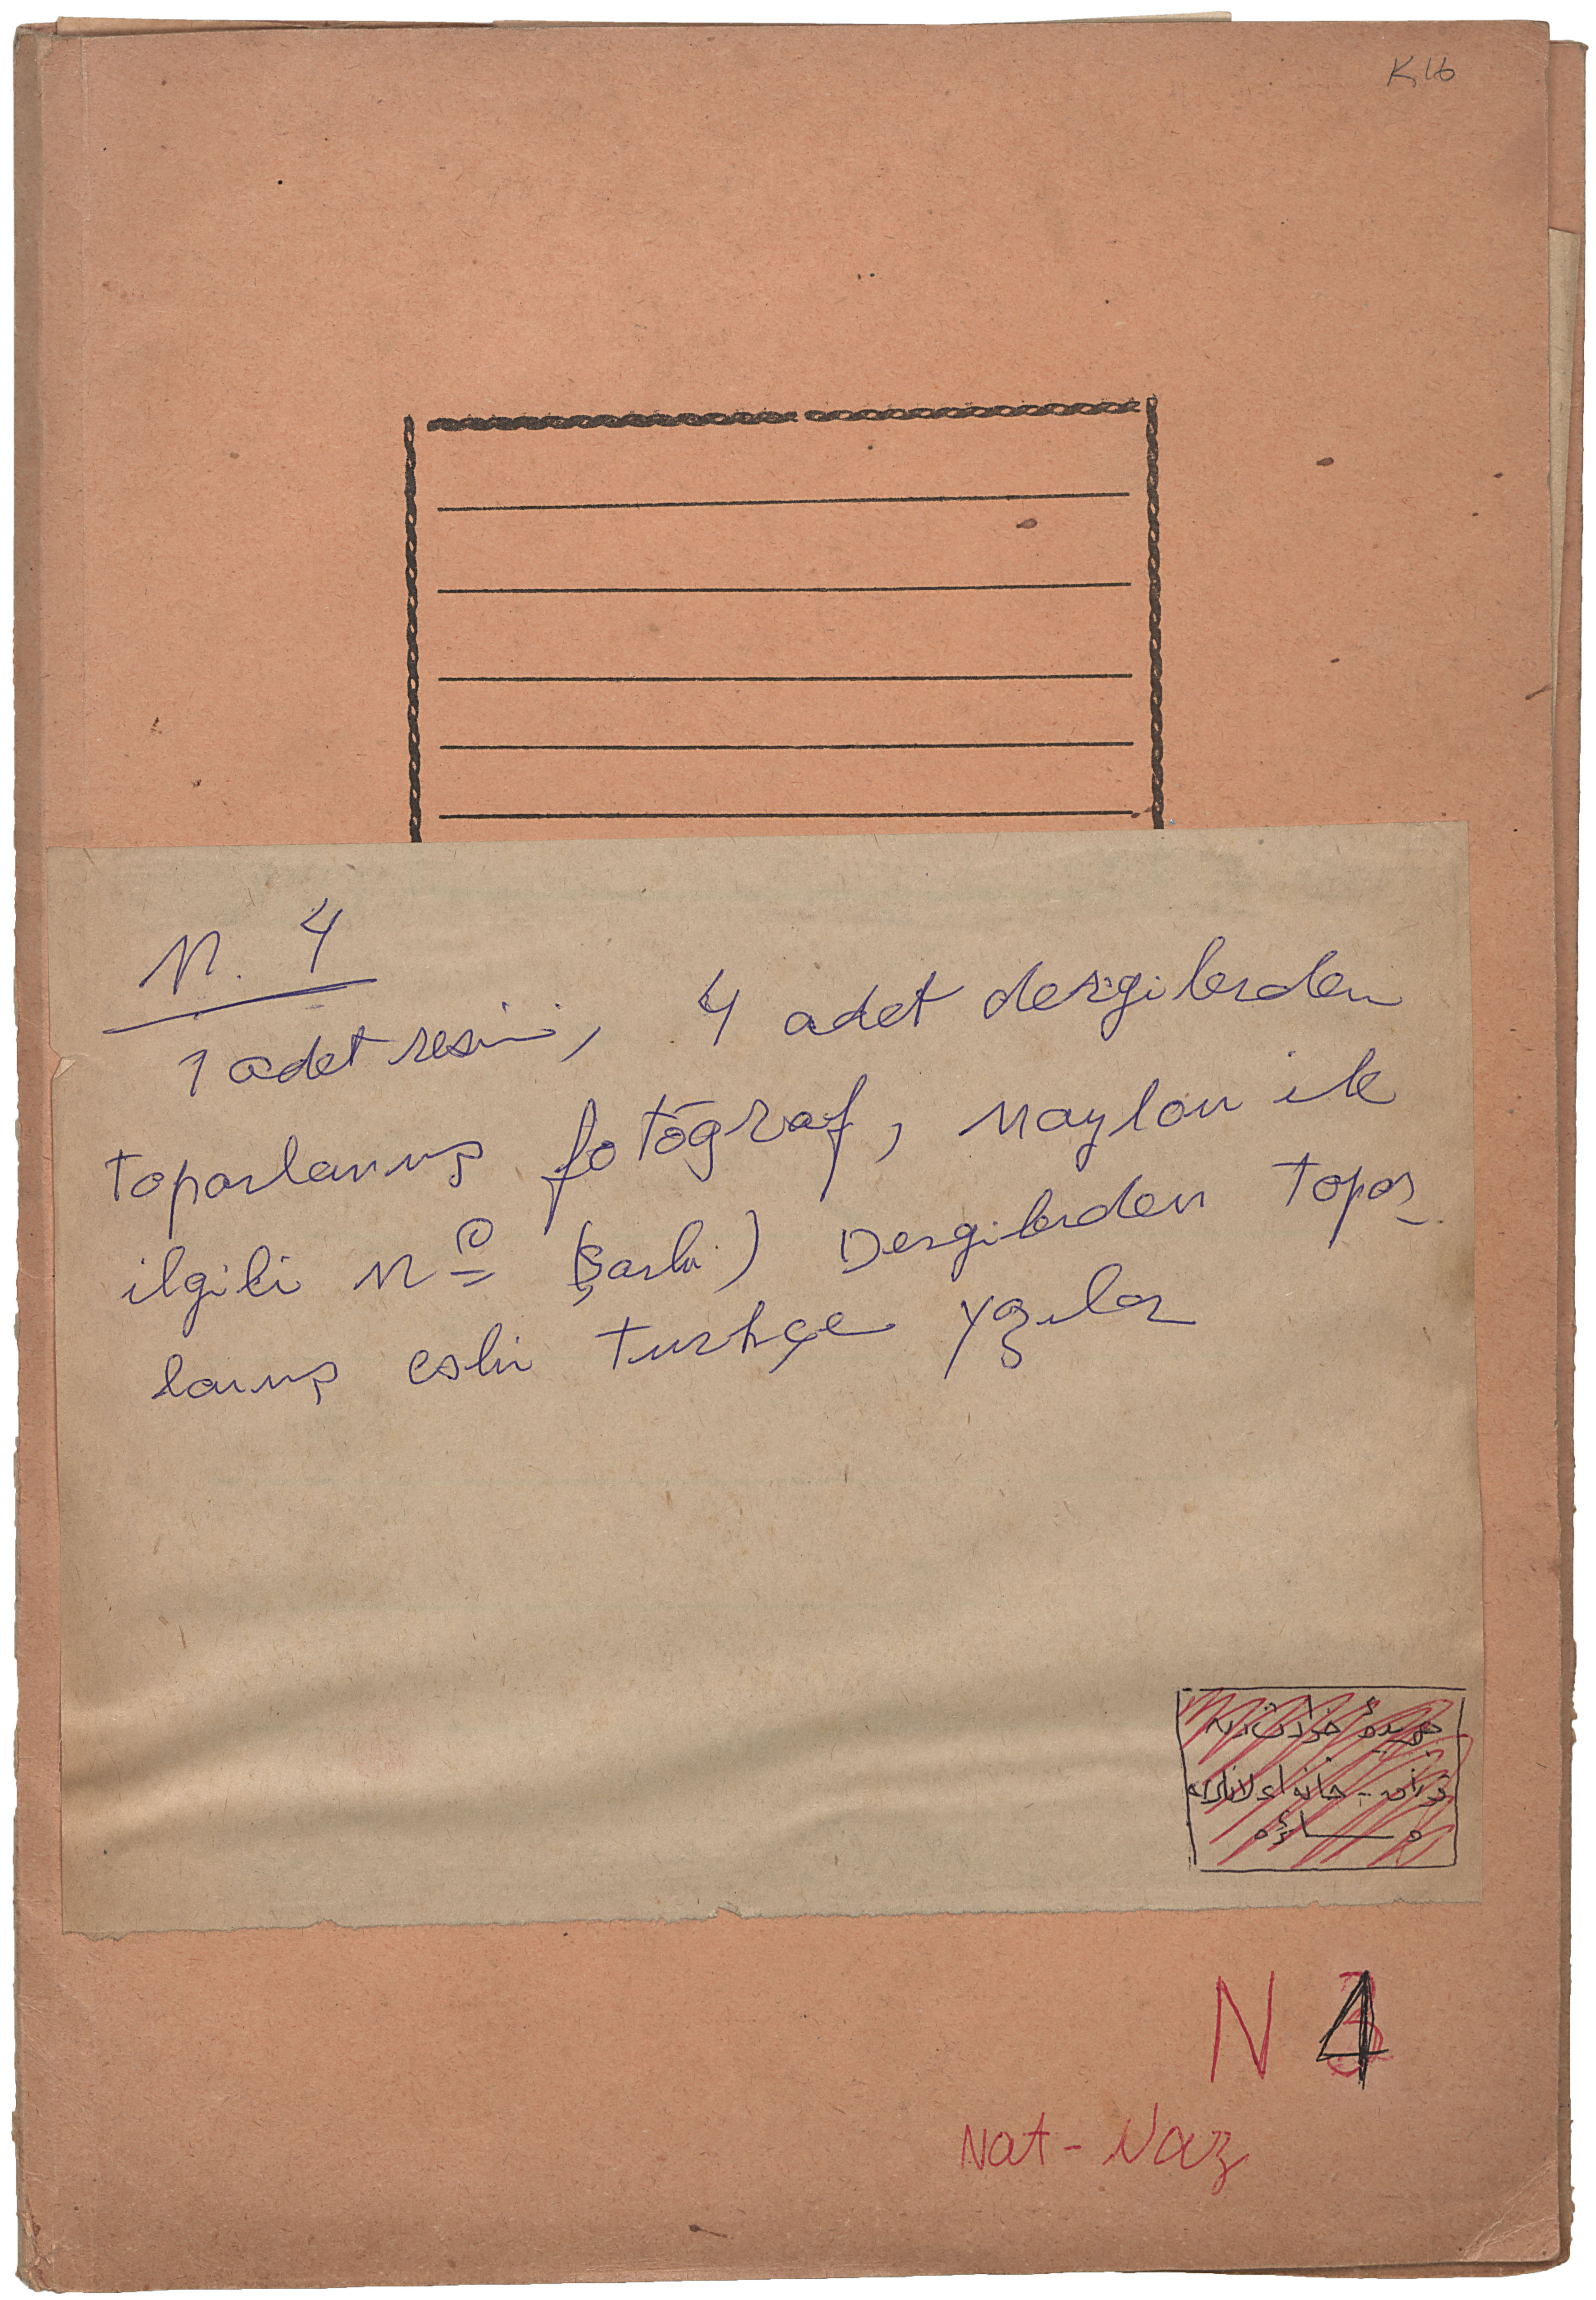 K16
N. 4
1 adet resim, 4 adet dergilerden
toparlanmış fotoğraf, Naylon ile
ilgili N (Şarkı) Dergilerden topar
lanmış eski turkçe yazılar
N 4
Nat - Naz